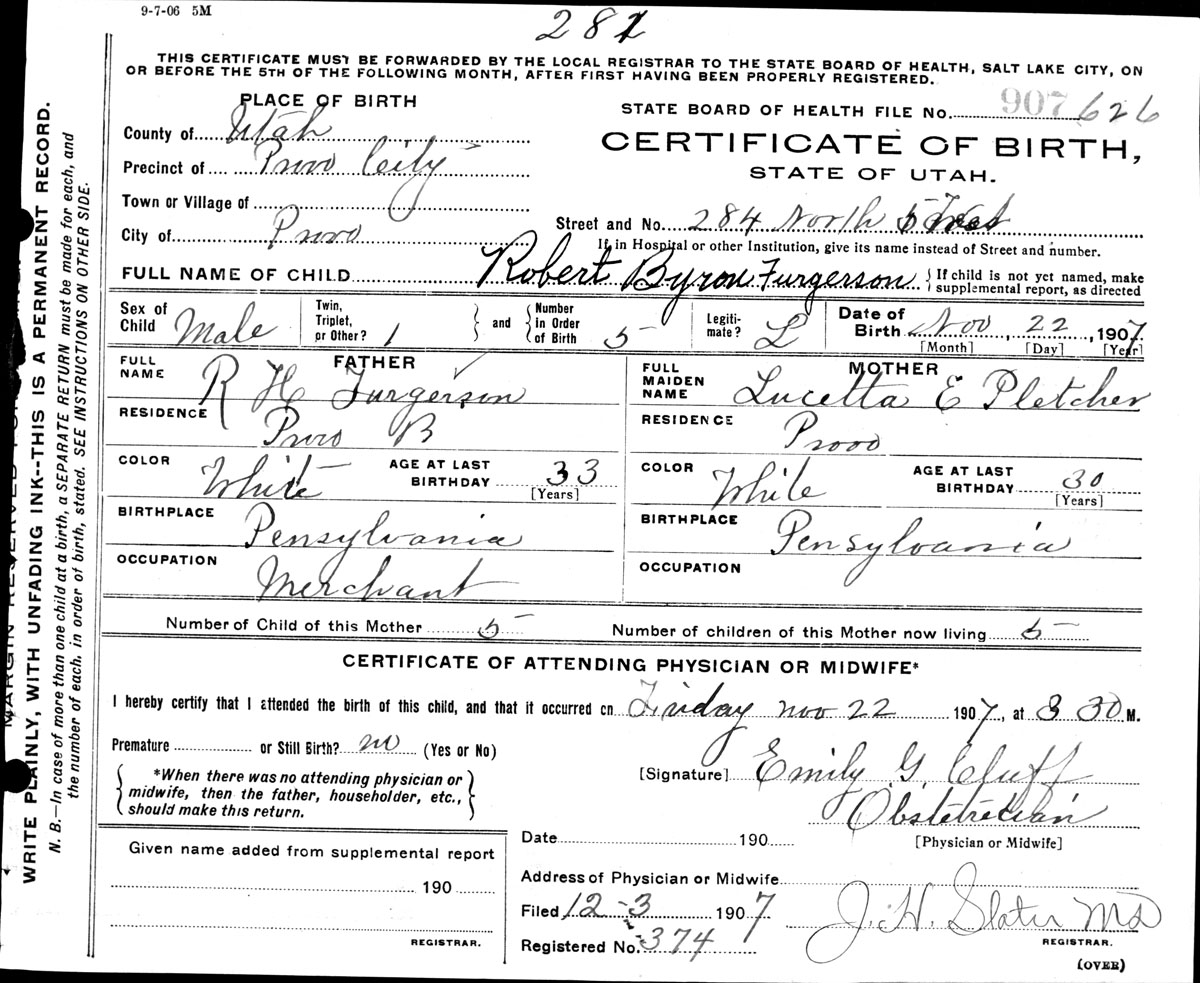 9-7-06 5M
282
THIS CERTIFICATE MUST BE FORWARDED BY THE LOCAL REGISTRAR TO THE STATE BOARD OF HEALTH, SALT LAKE CITY, ON
OR BEFORE THE 5TH OF THE FOLLOWING MONTH, AFTER FIRST HAVING BEEN PROPERLY REGISTERED.
PLACE OF BIRTH
STATE BOARD OF HEALTH FILE No. 907 626
County of Utah
CERTIFICATE OF BIRTH,
Precinct of Provo City
STATE OF UTAH.
Town or Village of
Street and No. 284 North 5 West
City of Provo
If in Hospital or other Institution, give its name instead of Street and number.
FULL NAME OF CHILD Robert Byron Furgerson
{If child is not yet named, make
supplemental report, as directed
Sex of Child Male
Twin, Triplet, or Other? 1
} and {
Number in Order of Birth 5
Legiti- mate? L
Date of Birth Nov 22, 1907
[Month] [Day] [Year]
FATHER
FULL NAME R H Furgerson
RESIDENCE Provo B
COLOR White
AGE AT LAST BIRTHDAY 33
[Years]
BIRTHPLACE Pensylvania
OCCUPATION Merchant
MOTHER
FULL MAIDEN NAME Lucetta E Pletcher
RESIDENCE Provo
COLOR White
AGE AT LAST BIRTHDAY 30
[Years]
BIRTHPLACE Pensylvania
OCCUPATION
Number of Child of this Mother 5 Number of children of this Mother now living 5
CERTIFICATE OF ATTENDING PHYSICIAN OR MIDWIFE*
I hereby certify that I attended the birth of this child, and that it occurred on Friday Nov 22 1907, at 3 30 M.
Premature or Still Birth? no (Yes or No)
{*When there was no attending physician or
midwife, then the father, householder, etc.,
should make this return.}
[Signature] Emily G Cluff
Obstetrecian
[Physician or Midwife]
Date 190
Given name added from supplemental report
190
REGISTRAR.
Address of Physician or Midwife
Filed 12-3 1907
J. H. Slater MD
REGISTRAR.
Registered No. 374
(OVER)
MARGIN RESERVED FOR
WRITE PLAINLY, WITH UNFADING INK--THIS IS A PERMANENT RECORD.
N. B.—In case of more than one child at a birth, a SEPARATE RETURN must be made for each, and
the number of each, in order of birth, stated. SEE INSTRUCTIONS ON OTHER SIDE.